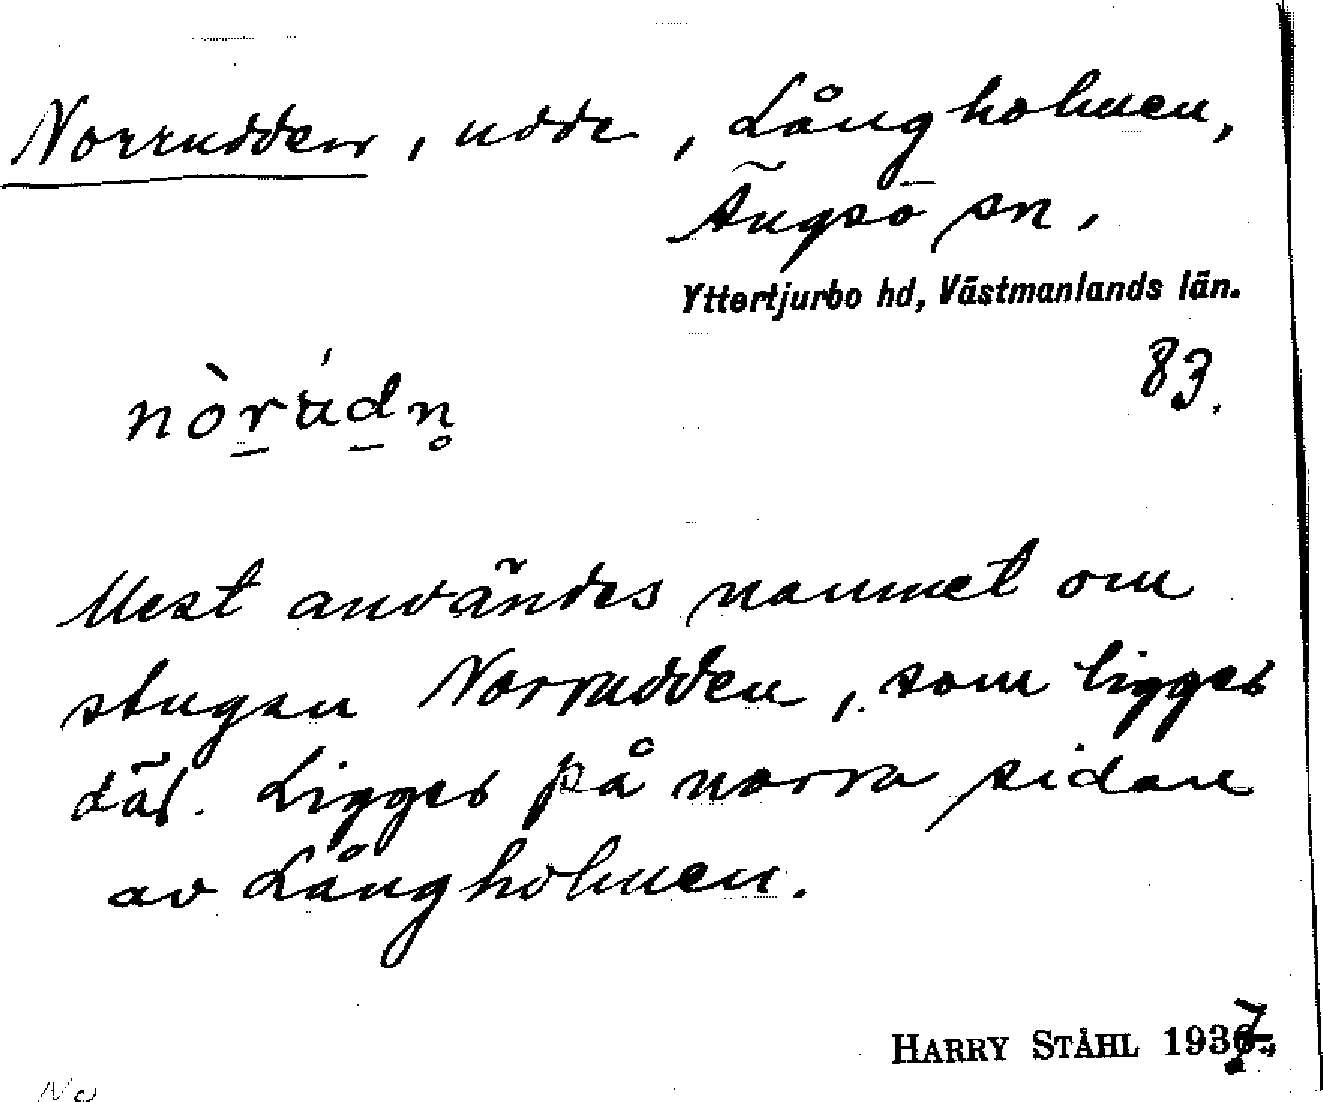 Norrudden, udde, Långholmen,
Ängsö sn.
Yttertjurbo hd, Västmanlands län.
83.
nòr̲úd̲n̥
Mest användes namnet om
stugan Norrudden, som ligger
där. Ligger på norra sidan
av Långholmen.
HARRY STÅHL 1937.
No